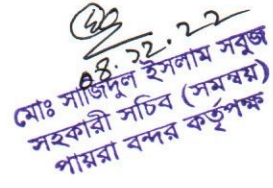 ০৪.১২.২২
মোঃ সাজিদুল ইসলাম সবুজ
সহকারী সচিব (সমন্বয়)
পায়রা বন্দর কর্তৃপক্ষ